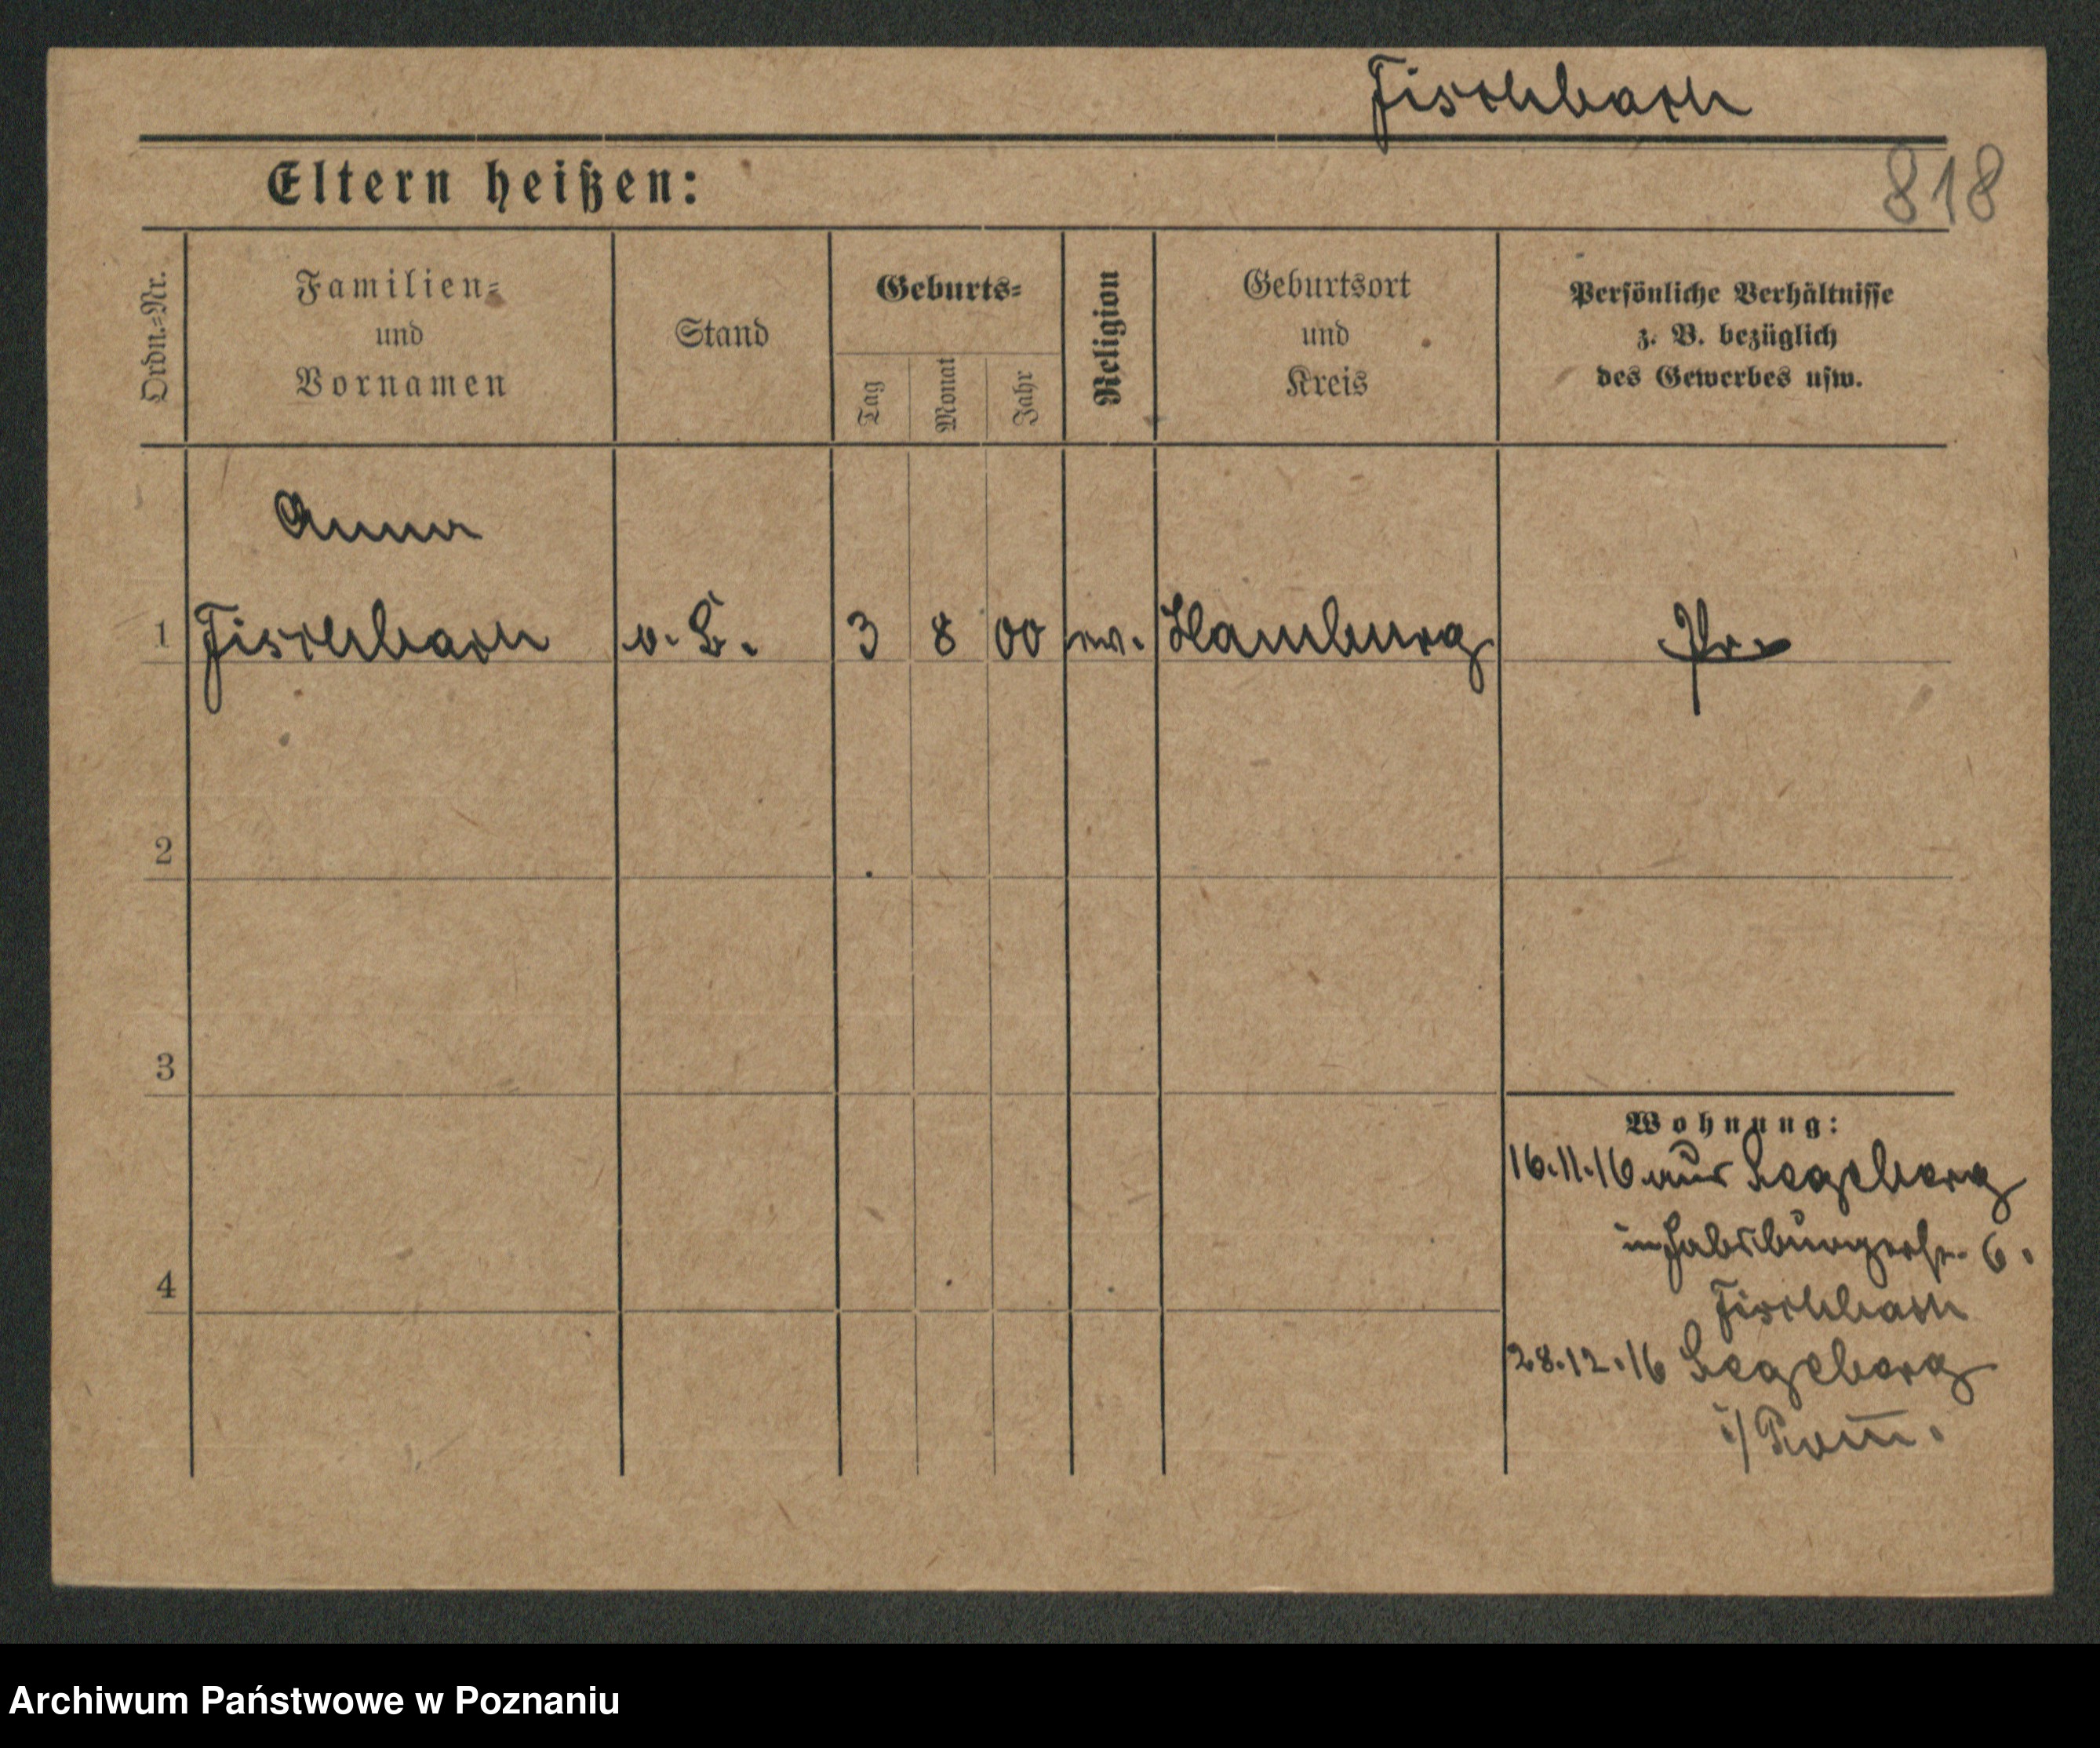 Fischbach
Eltern heißen:
818
Ordn.=Nr.
Familien=
und
Vornamen
Stand
Geburts=
Tag
Monat
Jahr
Religion
Geburtsort
und
Kreis
Persönliche Verhältnisse
z. B. bezüglich
des Gewerbes usw.
Anna
1 Fischbach o. B. 3 8 00 ev. Hamburg Pr.
2
3
4
Wohnung:
16.11.16 aus Segeberg
in Habsburgerstr. 6.
Fischbach
28.12.16 Segeberg
Archiwum Państwowe w Poznaniu